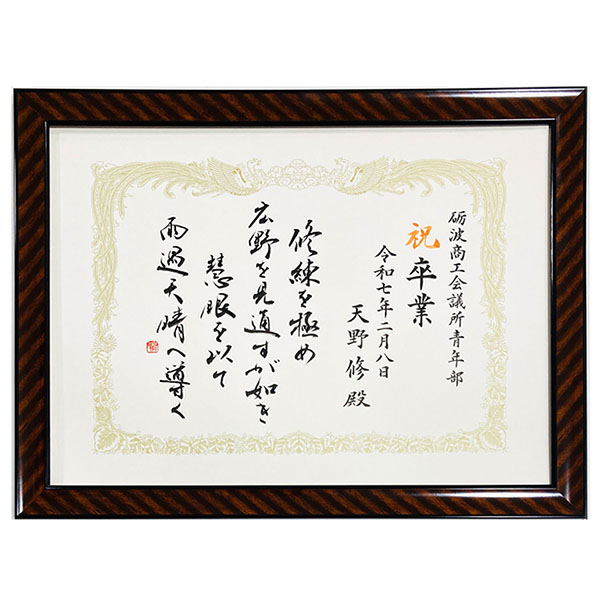 砺波商工会議所青年部
祝 卒業
令和七年二月八日
天野修殿
修練を極め
広野を見通すが如き
慧眼を以て
雨過天晴へ導く